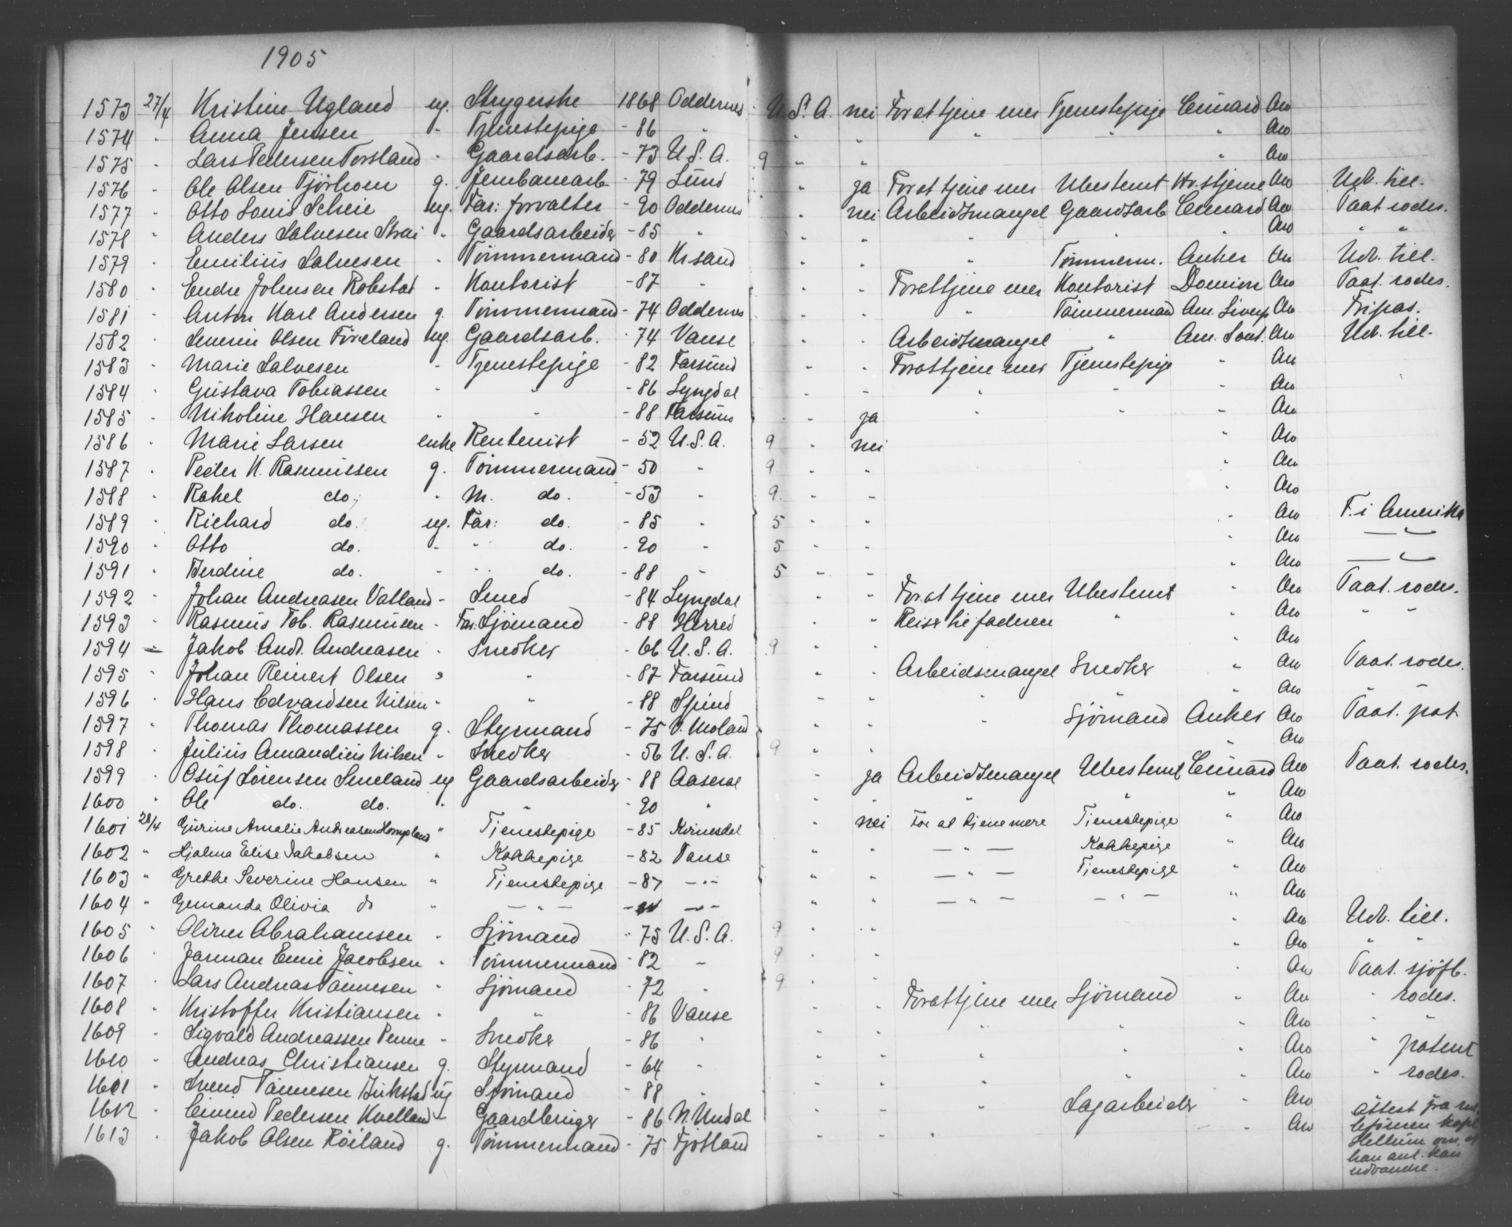 1905
1573 27/4 Kristine Ugland ug. Strygerske 1868 Oddernes U.S.A. nei For at tjene mer Tjenestepige Cunard Aro
1574 " Anna Jensen " Tjenestepige - 86 " " " " " " Aro
1575 " Lars Pedersen Torsland " Gaardsarb. - 73 U.S.A. 9 " " " Aro
1576 " Ole Olsen Tjørhom g. Jernbanearb - 79 Lund " ja For at tjene mer Ubestemt Hv. stjerne Aro Udv. till.
1577 " Otto Louis Scheie ug. Far: forvalter - 90 Oddernes " nei Arbeidsmangel Gaardsarb Cunard Aro Taat. rodes.
1578 " Anders Salvesen Strai " Gaardsarbeider - 85 " " " " " " Aro " "
1579 " Emilius Salvesen " Tømmermand - 80 Kr.sand " " " Tømmerm. Anker Aro Udv. till.
1580 " Endre Johnsen Robstad " Kontorist - 87 " " " For at tjene mer Kontorist Domion Aro Taat. rodes.
1581 " Anton Karl Andersen g. Tømmermand - 74 Oddernes " " " Tømmermand Am. Liverp Aro Fripas.
1582 " Severin Olsen Föreland ug. Gaardsarb. - 74 Vanse " " Arbeidsmangel " Am. Sout. Aro Udv. till.
1583 " Marie Salvesen " Tjenestepige - 82 Farsund " " For at tjene mer Tjenestepige " Aro
1584 " Gustava Tobiassen " " - 86 Lyngdal " " " " " Aro
1585 " Nikoline Hansen " " - 88 Farsund " ja " " " Aro
1586 " Marie Larsen enke Rentenist - 52 U.S.A. 9 " nei " Aro
1587 " Peder K. Rasmussen g. Tømmermand - 50 " 9 " " " Aro
1588 " Rakel do. " m. do. - 53 " 9 " " " Aro
1589 " Richard do. ug. Far: do. - 85 " 5 " " " Aro F. i Amerika
1590 " Otto do. " " do. - 90 " 5 " " " Aro — " —
1591 " Berdine do. " " do. - 88 " 5 " " " Aro — " —
1592 " Johan Andreasen Vatland " Smed - 84 Lyngdal " " For at tjene mer Ubestemt " Aro Taat. rodes.
1593 " Rasmus Tob. Rasmussen " Far. Sjømand - 88 Herred " " Reise til faderen " " Aro " "
1594 " Jakob Andr. Andreasen " Snedker - 66 U.S.A. 9 " " Aro
1595 " Johan Reinert Olsen " " - 87 Farsund " " Arbeidsmangel Snedker " Aro Taat. rodes.
1596 " Hans Edvardsen Nilsen " " - 88 Spind " " " " " Aro " "
1597 " Thomas Thomassen g. Styrmand - 75 V. Moland " " " Sjømand Anker Aro Taat. pat
1598 " Julius Amandius Nilsen " Snedker - 56 U.S.A. 9 " " " Aro
1599 " Osuf Sörensen Smeland ug Gaardsarbeider - 88 Aaseral " ja Arbeidsmangel Ubestemt Cunard Aro Taat. rodes.
1600 " Ole do. do. " " - 90 " " " " " " Aro
1601 28/4 Gurine Amalie Andreasen " Tjenestepige - 85 Kvinesdal " nei For at tjene mere Tjenestepige " Aro
1602 " Hjalma Elise Jakobsen " Kokkepige - 82 Vanse " " — " — Kokkepige " Aro
1603 " Grethe Severine Hansen " Tjenestepige - 87 — " — " " — " — Tjenestepige " Aro
1604 " Gemanda Olivia do " — " — — " — " " — " — — " — " Aro
1605 " Oliver Abrahamsen " Sjømand - 75 U.S.A. 9 " " " Aro Udv. till.
1606 " Jarman Emil Jacobsen " Tømmermand - 82 " 9 " " " Aro " "
1607 " Lars Andreas Tønnesen " Sjømand - 72 " 9 " " " Aro Taat. sjöfb.
1608 " Kristoffer Kristiansen " " - 86 Vanse " " For at tjene mer Sjømand " Aro " rodes.
1609 " Sigvald Andreassen Penne " Snedker - 86 " " " " " " Aro " "
1610 " Andreas Christiansen g. Styrmand - 64 " " " " " " Aro " patent
1611 " Svend Tønnesen Birkeland ug Sjømand - 88 " " " " " " Aro " rodes.
1612 " Eivind Pedersen Kvelland " Gaardbruger - 86 N. Undal " " " Sagarbeider " Aro Attest fra
1613 " Jakob Olsen Röiland g. Tømmermand - 75 Fjotland " " " " " Aro
han anl. kan
udvandre.